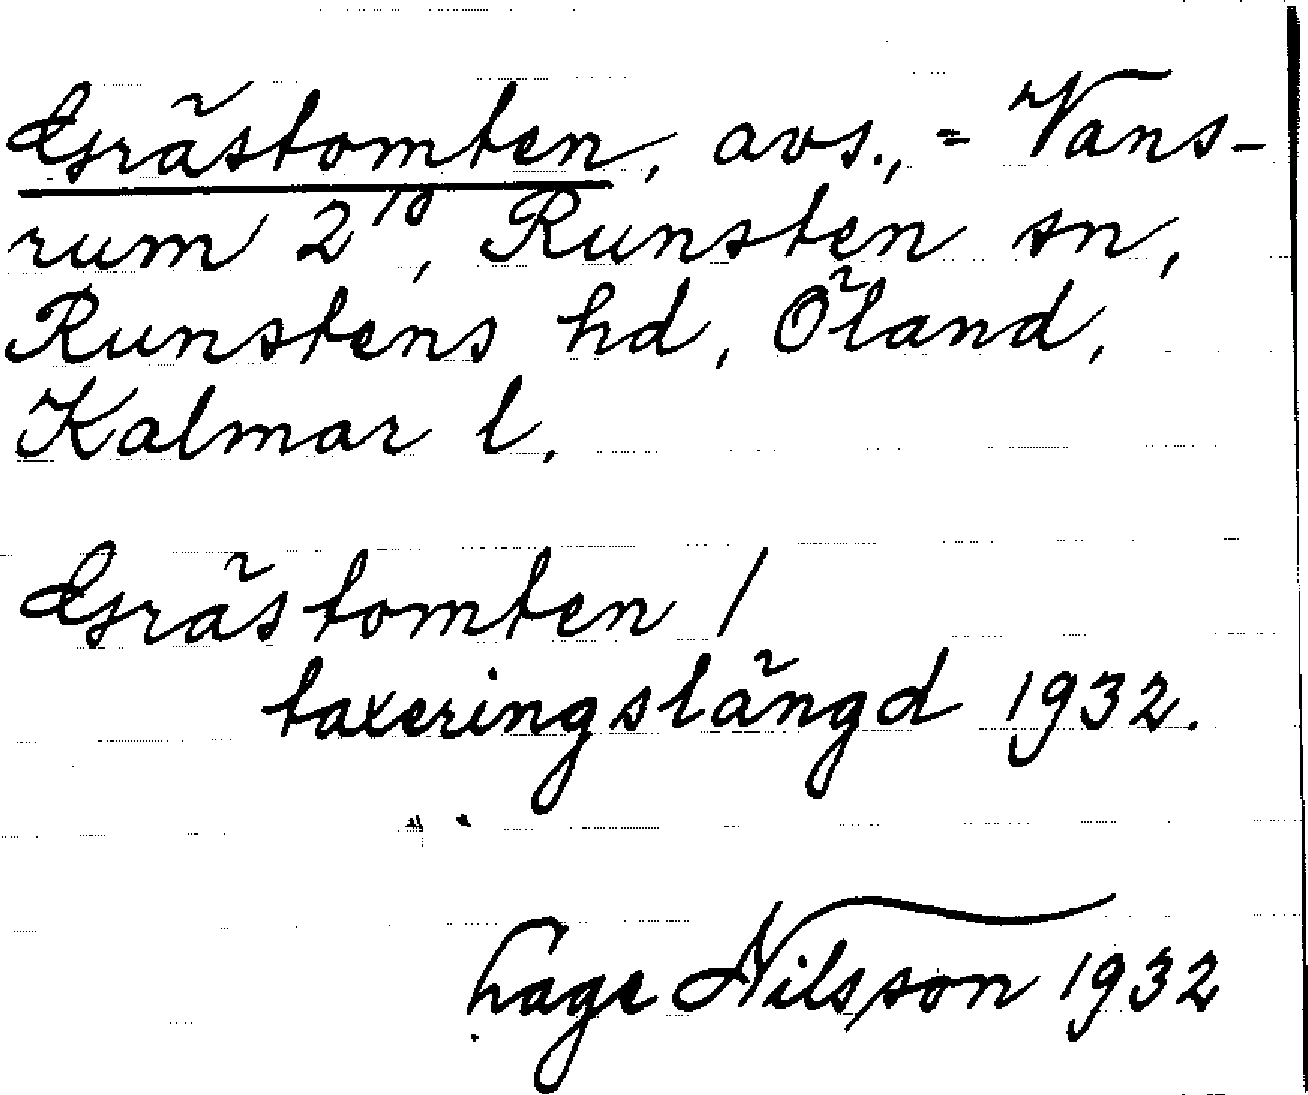 Grästomten, avs., = Vans-
rum 2¹⁰, Runsten sn,
Runstens hd, Öland,
Kalmar l.
Grästomten /
taxeringslängd 1932.
Lage Nilsson 1932